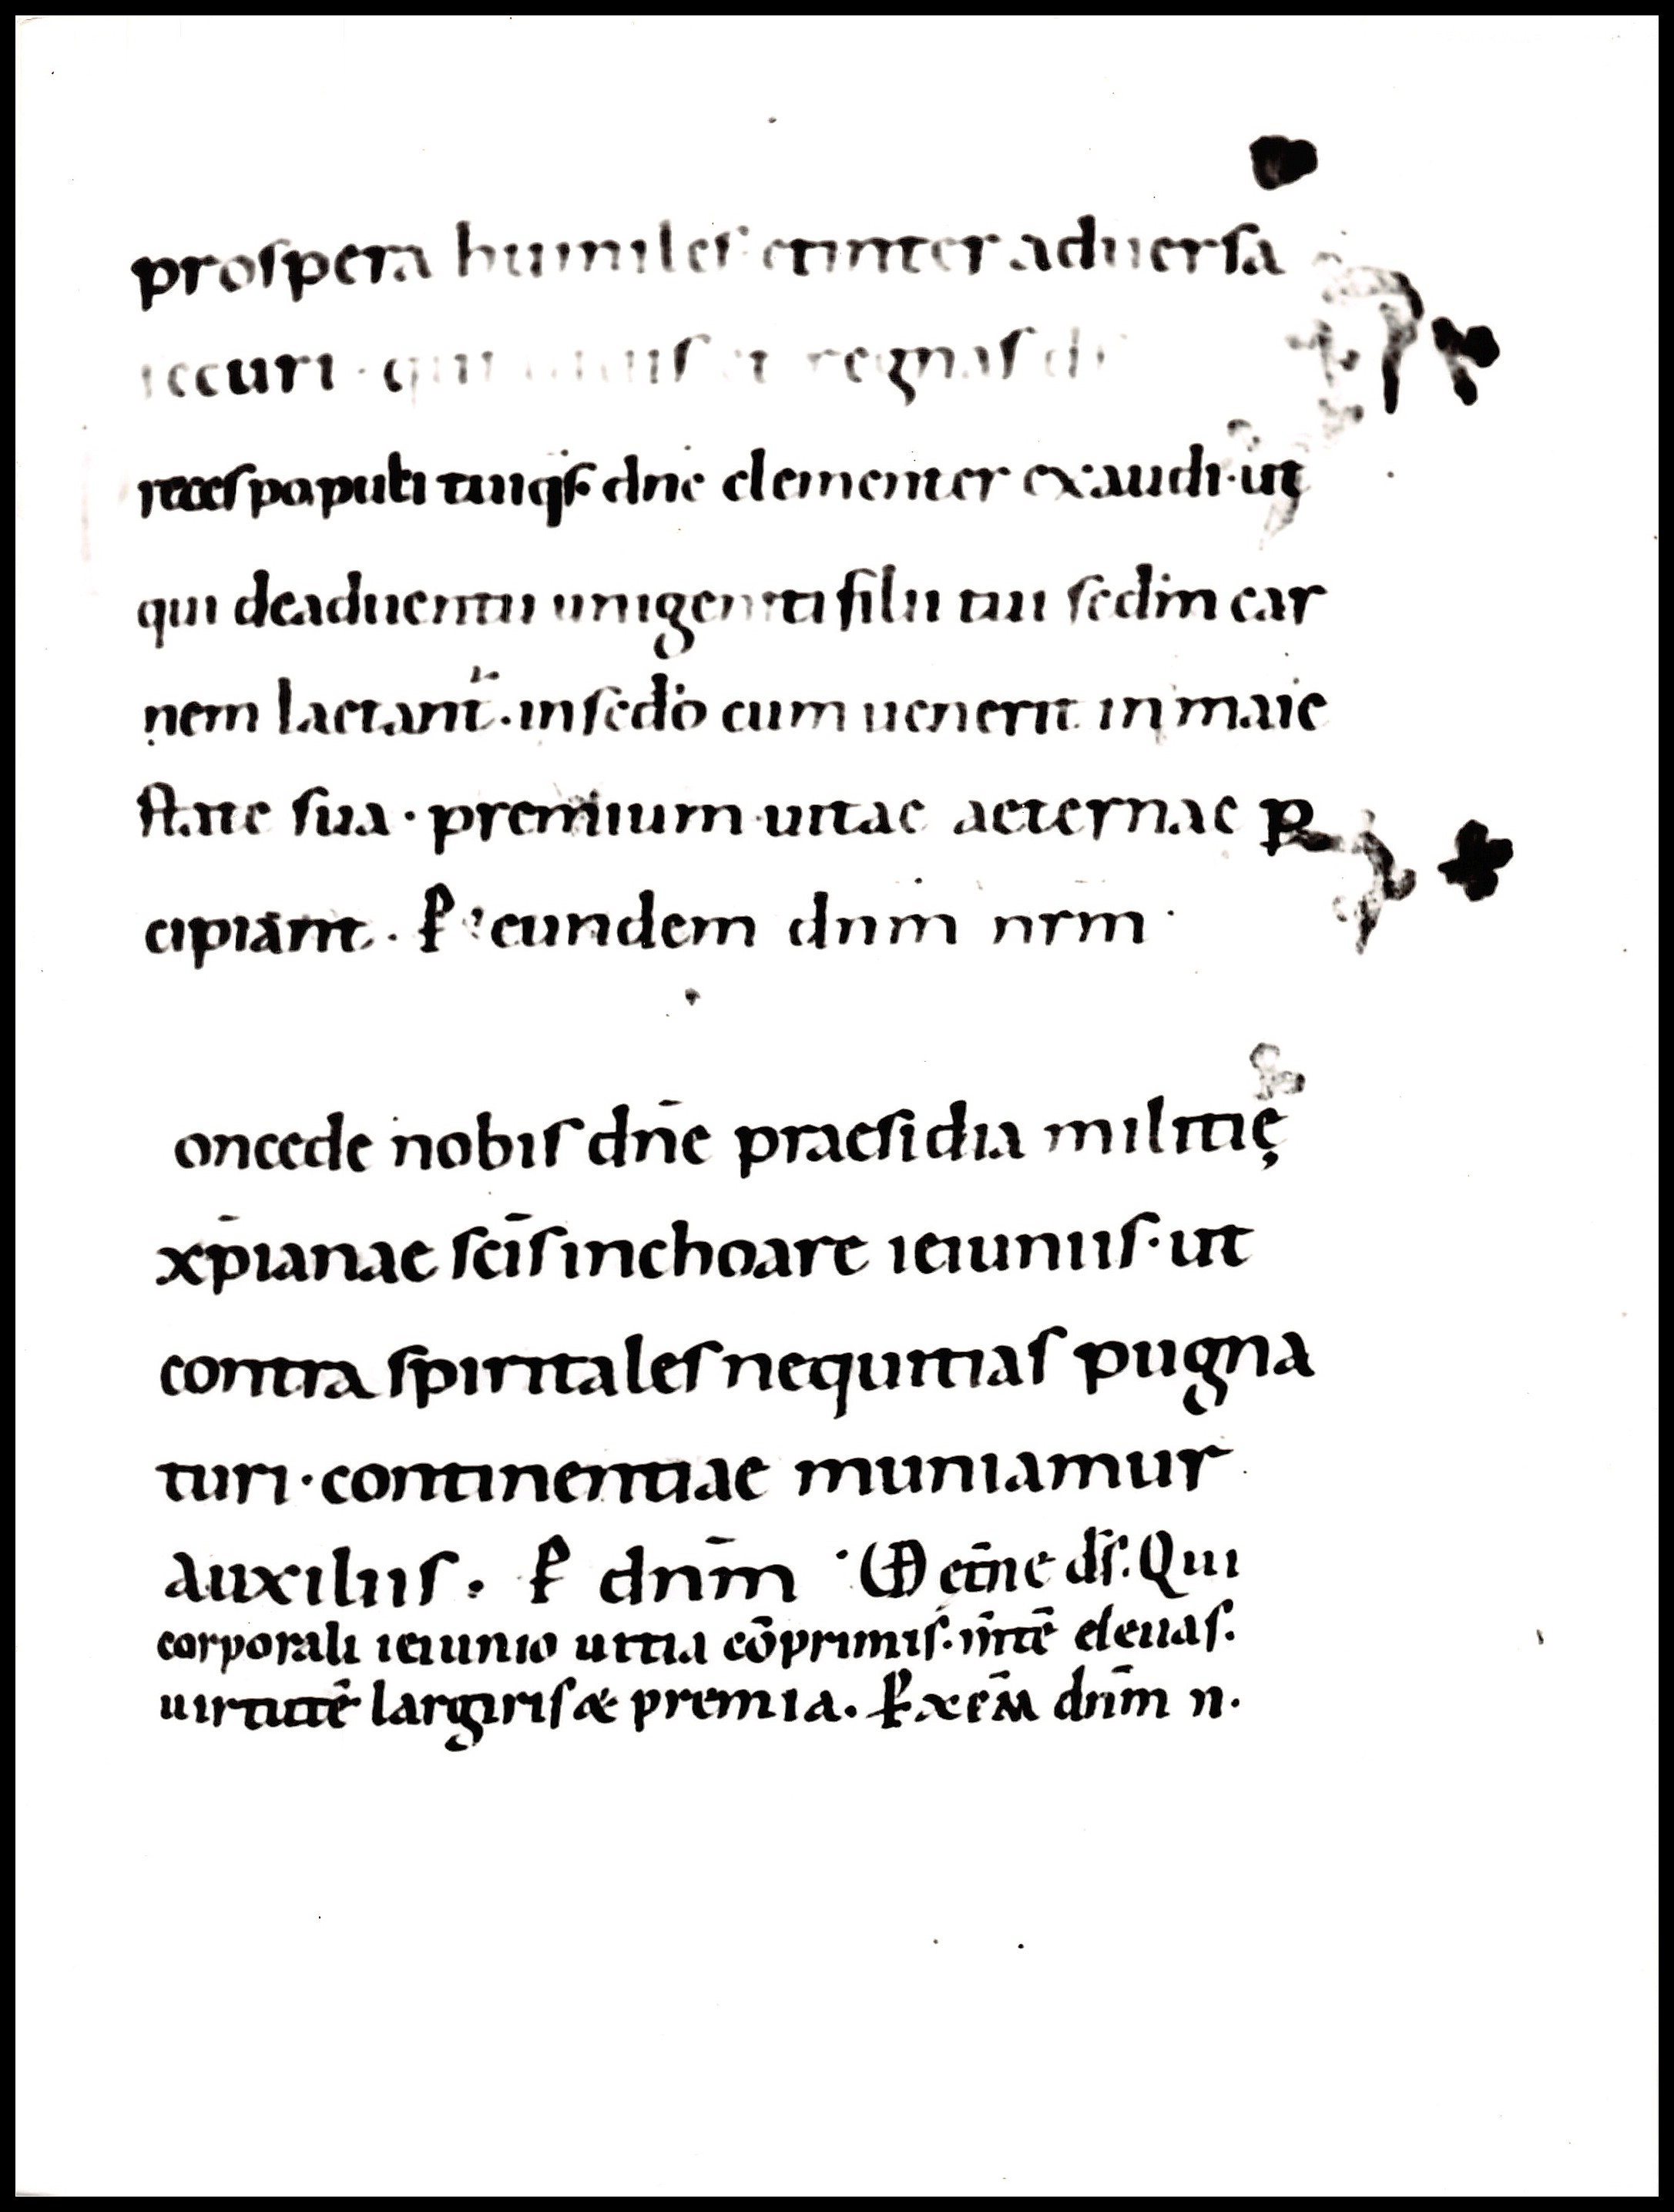 prospera humiles · et inter aduersa
securi · qui uiuis et regnas ds
reces populi tui qs dne clementer exaudi · ut
qui de aduentu unigeniti filii tui scdm car
nem laetant̄ · in scdo cum uenerit in maie
state sua · premium uitae aeternae p
cipiant · P eundem dnm nrm ·
oncede nobis dn̄e praesidia militię
xp̄ianae sc̄is inchoare ieiuniis · ut
contra spiritales nequitias pugna
turi · continentiae muniamur
auxiliis · P dnm̄ · UD et̄ne ds̄. Qui
corporali ieiunio uitia cōprimis · m̄tē eleuas.
uirtutē largiris & premia. P xp̄m dnm̄ n.